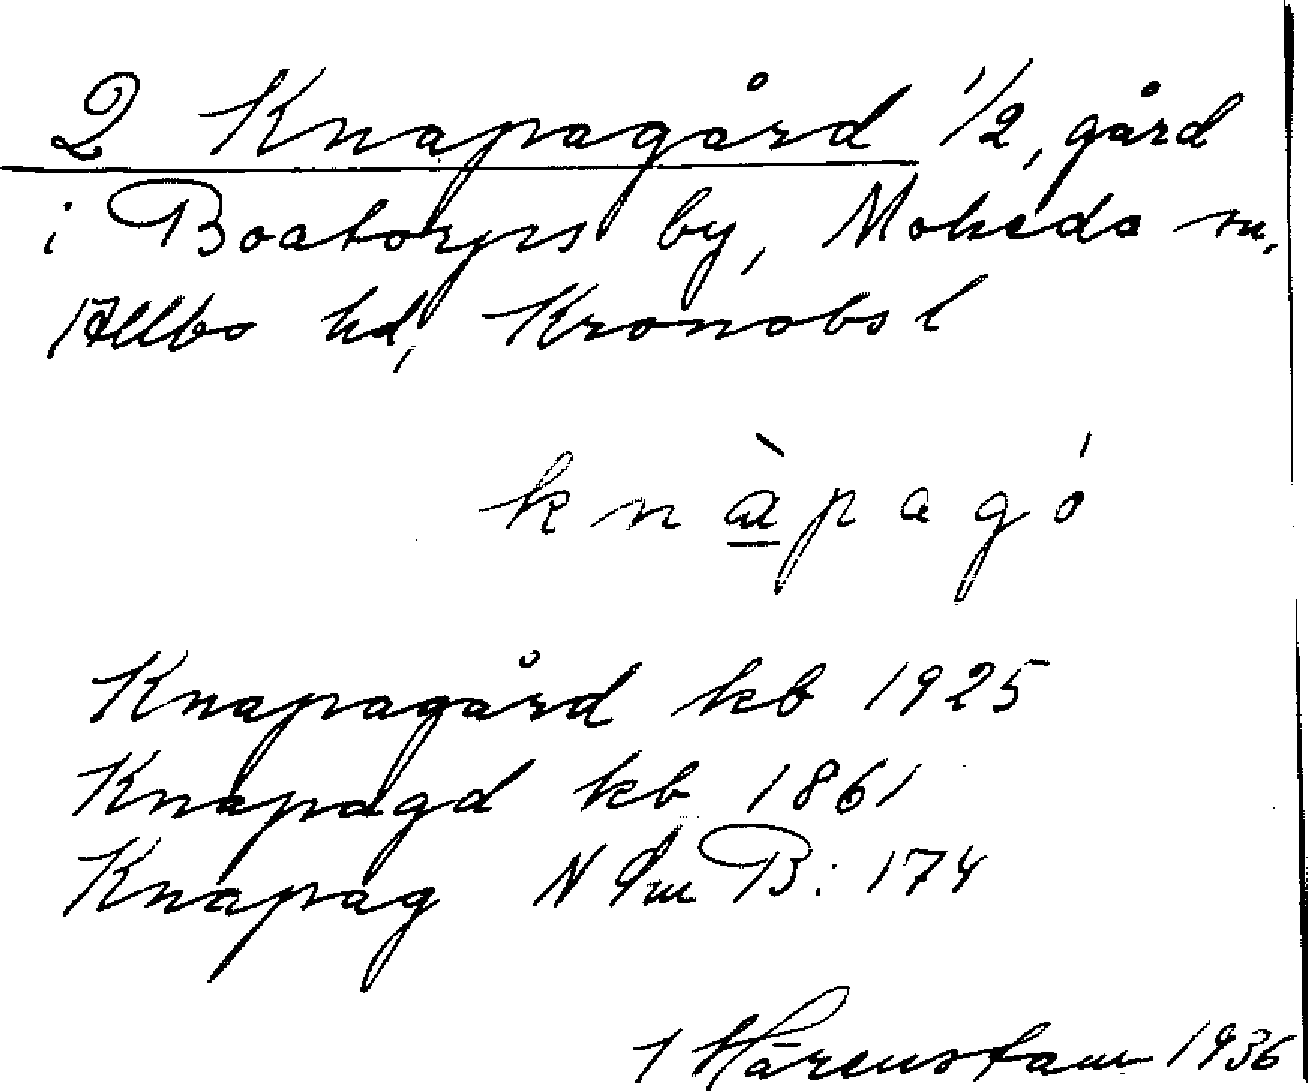 2 Knapagård 1/2, gård
i Boatorps by, Moheda sn,
Allbo hd, Kronobs l
knàpagó
Knapagård kb 1925
Knapagd kb 1861
Knapag N Sm B: 174
J Härenstam 1936